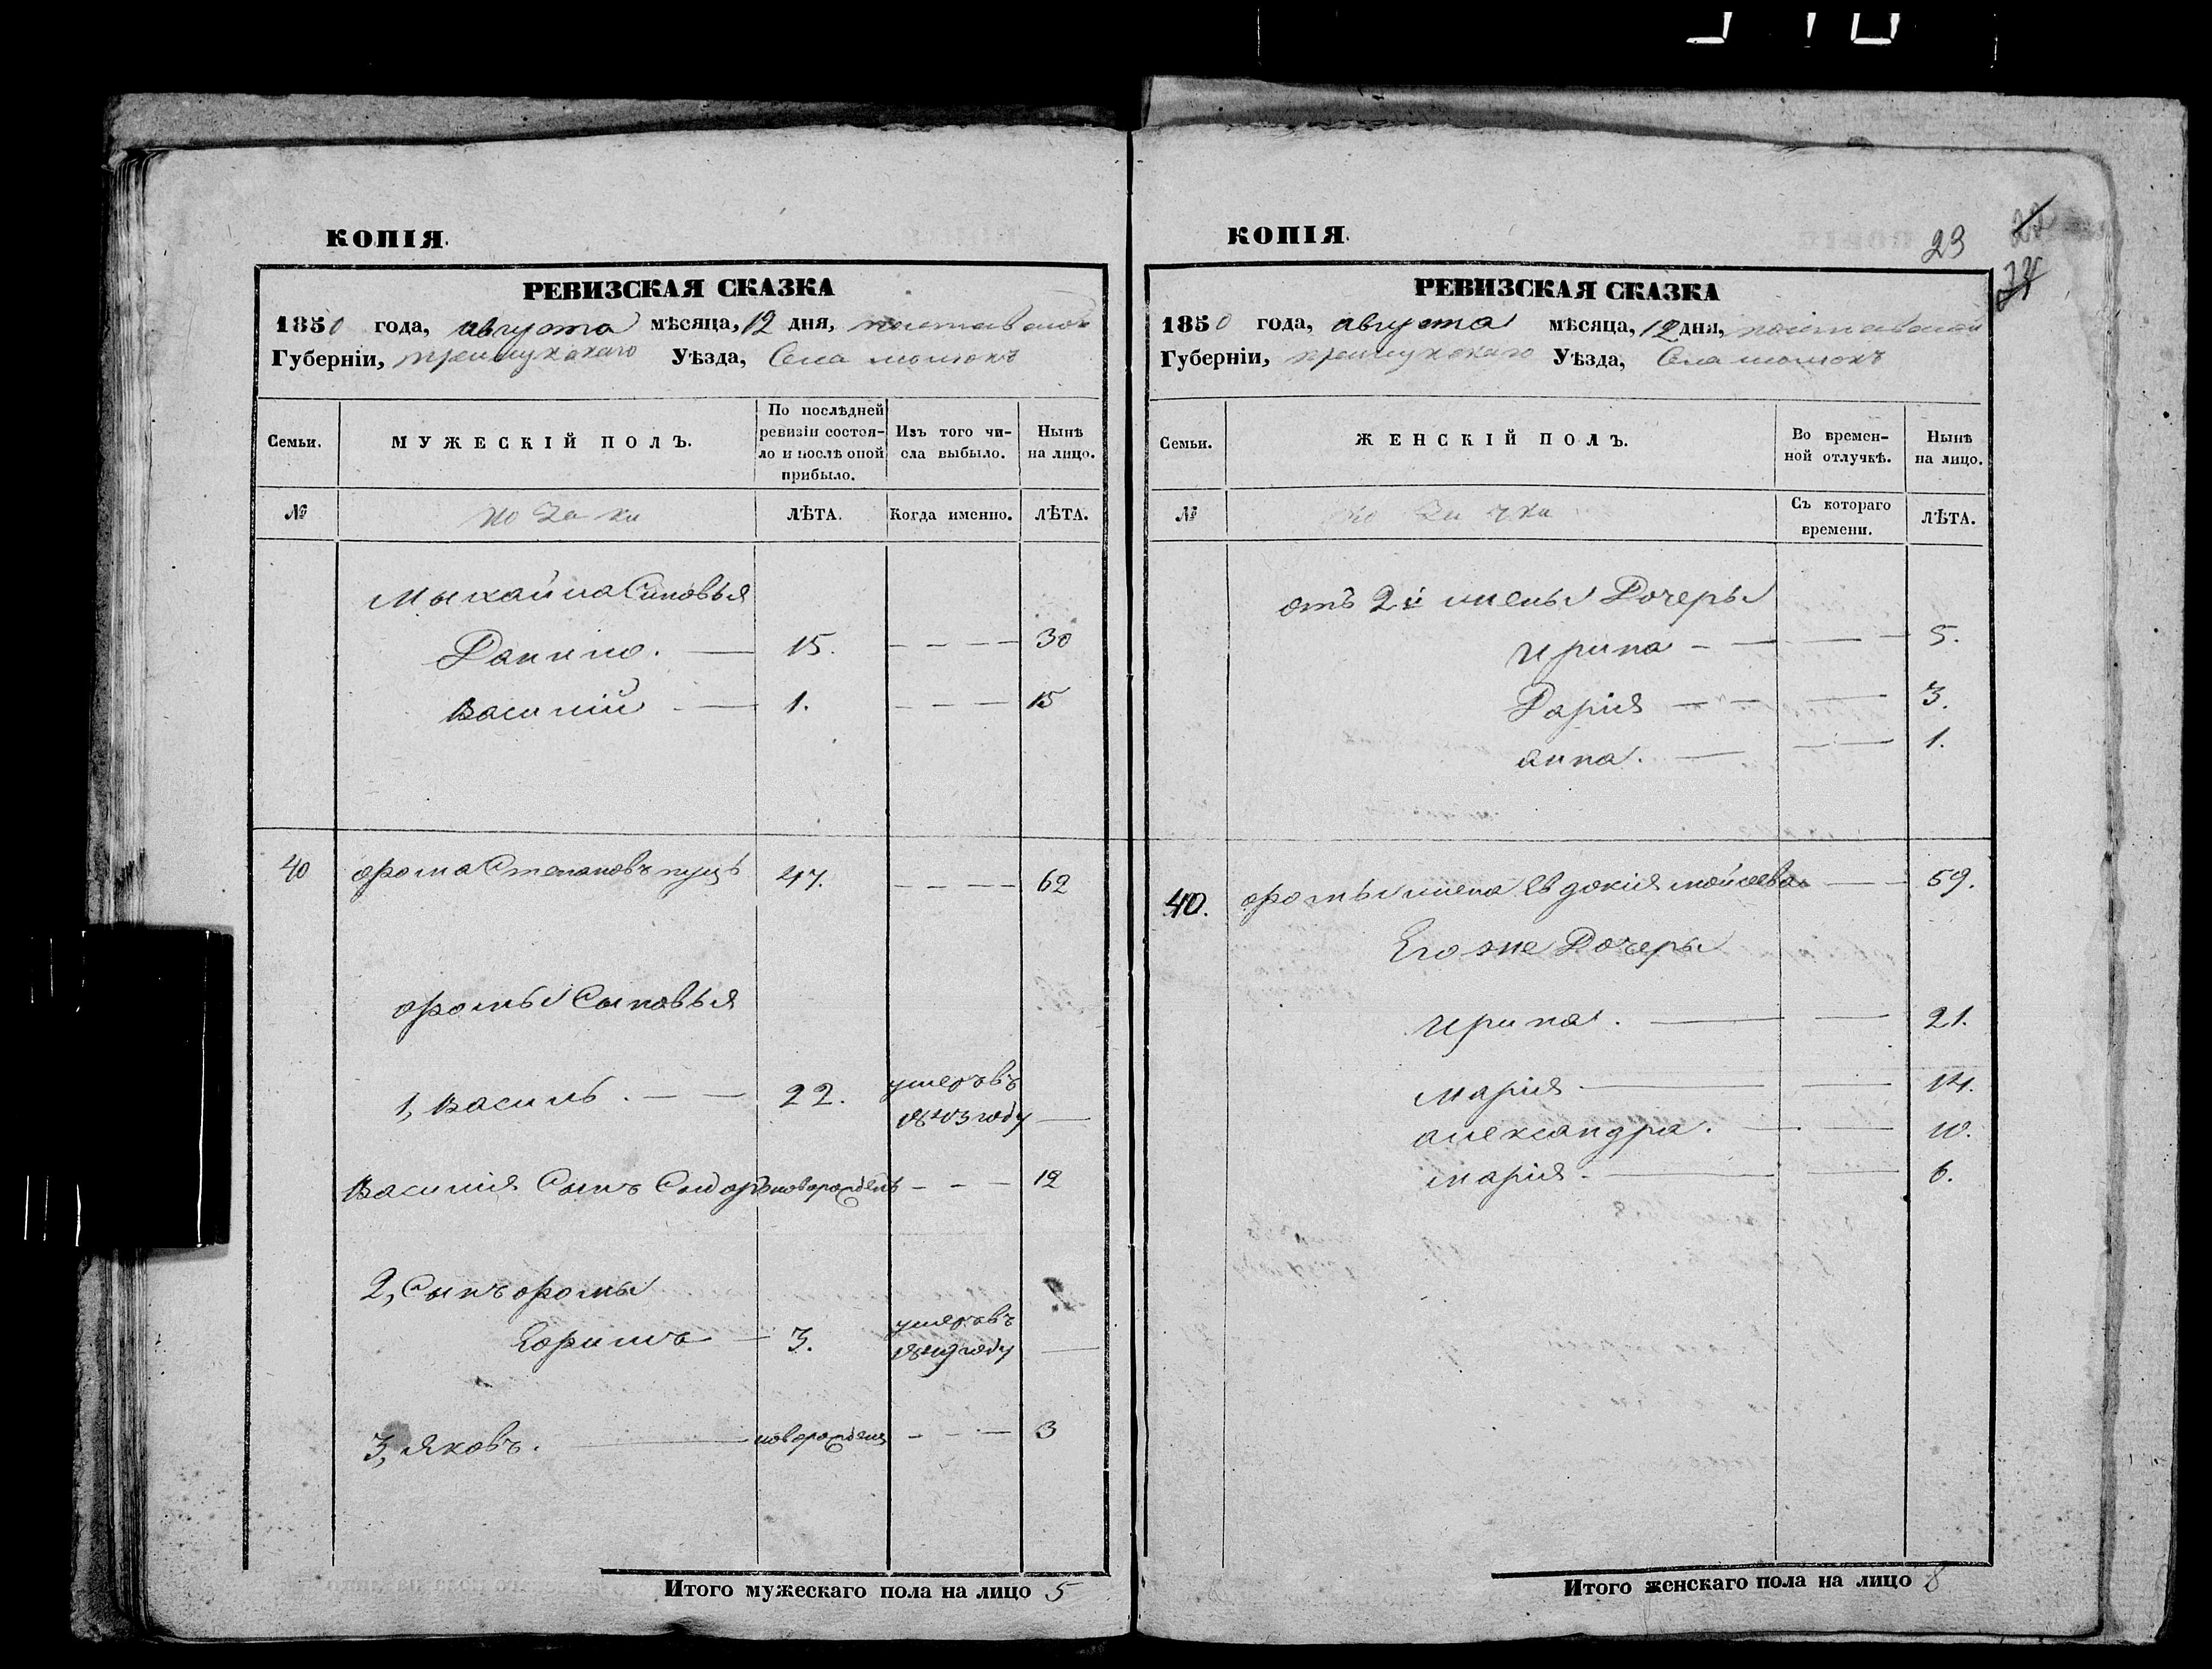 КОПІЯ.
РЕВИЗСКАЯ СКАЗКА
1850 года, августа мѣсяца, 12 дня, полтавской
Губерніи, прилукскаго Уѣзда, Села
Семьи.
МУЖЕСКІЙ ПОЛЪ.
По послѣдней ревизіи состоя-
ло и послѣ оной прибыло.
Изъ того чи-
сла выбыло.
Нынѣ
на лицо.
№
козаки
ЛѢТА.
Когда именно.
ЛѢТА.
Мыхайла Синовья
Данило. 15. 30
Василій 1. 15
40 Фома Степановъ 47. 62
Фомы Сыновья
1, Василь. 22. умеръ въ
1843 году
Василия Сынъ Сидоръ новорожденъ 12
2, Сынъ Фомы
Ефимъ 3. умеръ въ
1849 году
3, Яковъ. новорожден 3
Итого мужескаго пола на лицо 5
КОПІЯ.
23
22
24
РЕВИЗСКАЯ СКАЗКА
1850 года, августа мѣсяца, 12 дня, полтавской
Губерніи, прилукскаго Уѣзда, Села
Семьи.
ЖЕНСКІЙ ПОЛЪ.
Во времен-
ной отлучкѣ.
Нынѣ
на лицо.
№
козачки
Съ котораго
времени.
ЛѢТА.
отъ 2й жены Дочеры
Ирина 5.
Дарія 3.
анна. 1.
40. Фомы жена Евдокія мойсева 59.
Его же Дочеры
Ирина. 21.
Марія 14.
александра. 10.
марія. 6.
Итого женскаго пола на лицо 8